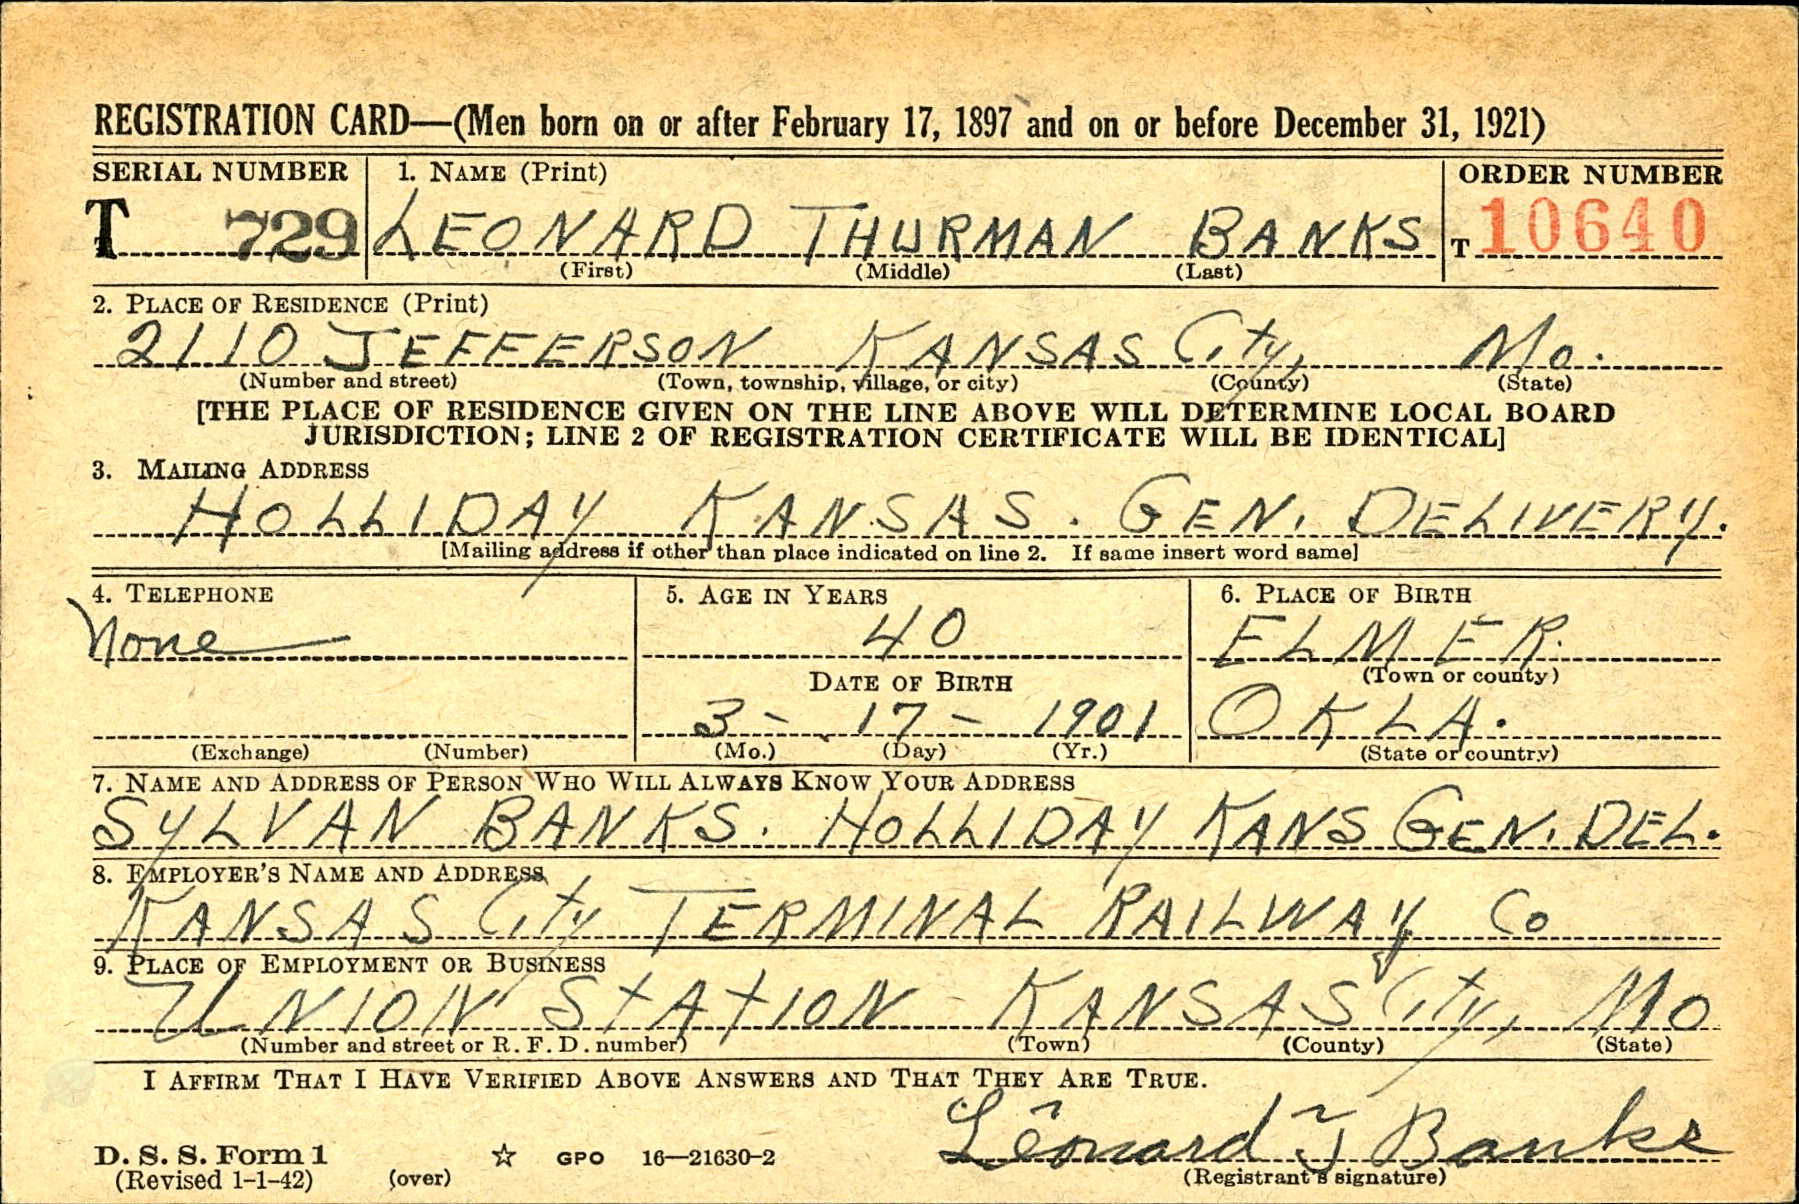 REGISTRATION CARD—(Men born on or after February 17, 1897 and on or before December 31, 1921)
SERIAL NUMBER 1. NAME (Print) ORDER NUMBER
T 729 LEONARD THURMAN BANKS T 10640
(First) (Middle) (Last)
2. PLACE OF RESIDENCE (Print)
2110 JEFFERSON KANSAS City, Mo.
(Number and street) (Town, township, village, or city) (County) (State)
[THE PLACE OF RESIDENCE GIVEN ON THE LINE ABOVE WILL DETERMINE LOCAL BOARD
JURISDICTION; LINE 2 OF REGISTRATION CERTIFICATE WILL BE IDENTICAL]
3. MAILING ADDRESS
HOLLIDAY KANSAS. GEN. DELIVERY.
[Mailing address if other than place indicated on line 2. If same insert word same]
4. TELEPHONE 5. AGE IN YEARS 6. PLACE OF BIRTH
None 40 ELMER.
(Town or county)
DATE OF BIRTH
3- 17- 1901 OKLA.
(Exchange) (Number) (Mo.) (Day) (Yr.) (State or country)
7. NAME AND ADDRESS OF PERSON WHO WILL ALWAYS KNOW YOUR ADDRESS
SYLVAN BANKS. HOLLIDAY KANS GEN. DEL.
8. EMPLOYER'S NAME AND ADDRESS
KANSAS City TERMINAL RAILWAY Co
9. PLACE OF EMPLOYMENT OR BUSINESS
UNION STATION KANSAS City, MO
(Number and street or R. F. D. number) (Town) (County) (State)
I AFFIRM THAT I HAVE VERIFIED ABOVE ANSWERS AND THAT THEY ARE TRUE.
Leonard T Banks
D. S. S. Form 1 ☆ GPO 16—21630-2
(Revised 1-1-42) (over) (Registrant's signature)